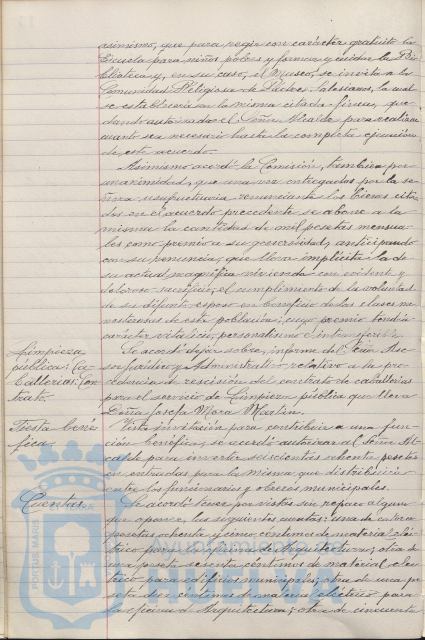 asimismo, que para regir con carácter gratuito la
Escuela para niños pobres y formar y cuidar la Bi-
blioteca y, en su caso, el Museo, se invita a la
Comunidad Religiosa de Padres Salesianos, la cual
se establecerá en la misma citada finca, que-
dando autorizado el Señor Alcalde para realizar
cuanto sea necesario hasta la completa ejecución
de este acuerdo.
Asimismo acordó la Comisión, también por
unanimidad, que una vez entregados por la se-
ñora usufructuaria renunciante los bienes cita-
dos en el acuerdo precedente se abone a la
misma la cantidad de mil pesetas mensua-
les como premio a su generosidad, anticipando
con su renuncia, que lleva implícita la de
su actual magnífica vivienda con evidente y
doloroso sacrificio, el cumplimiento de la voluntad
de su difunto esposo en beneficio de las clases me-
nesterosas de esta población; cuyo premio tendrá
carácter vitalicio, personalísimo e intransferible.
Limpieza
pública: Ca-
ballerías: Con-
trato.
Se acordó dejar sobre informe del Señor Ase-
sor Jurídico y Administrativo relativo a la pro-
cedencia de rescisión del contrato de caballerías
para el servicio de Limpieza pública que lleva
Doña Josefa Mora Martín.
Fiesta bené-
fica.
Vista invitación para contribuir a una fun-
ción benéfica, se acordó autorizar al Señor Al-
calde para invertir seiscientas ochenta pesetas
en entradas para la misma que distribuirá
entre los funcionarios y obreros municipales.
Cuentas.
Se acordó tener por vistas sin reparo alguno
que oponer, las siguientes cuentas: una de
pesetas ochenta y cinco céntimos de material eléc-
trico para la oficina de Arquitectura; otra de
una peseta sesenta céntimos de material eléc-
trico para edificios municipales; otra de una pe-
seta diez céntimos de material eléctrico para
la oficina de Arquitectura; otra de cincuenta
PORTUS MARIS
Ayuntamiento de
HUELVA